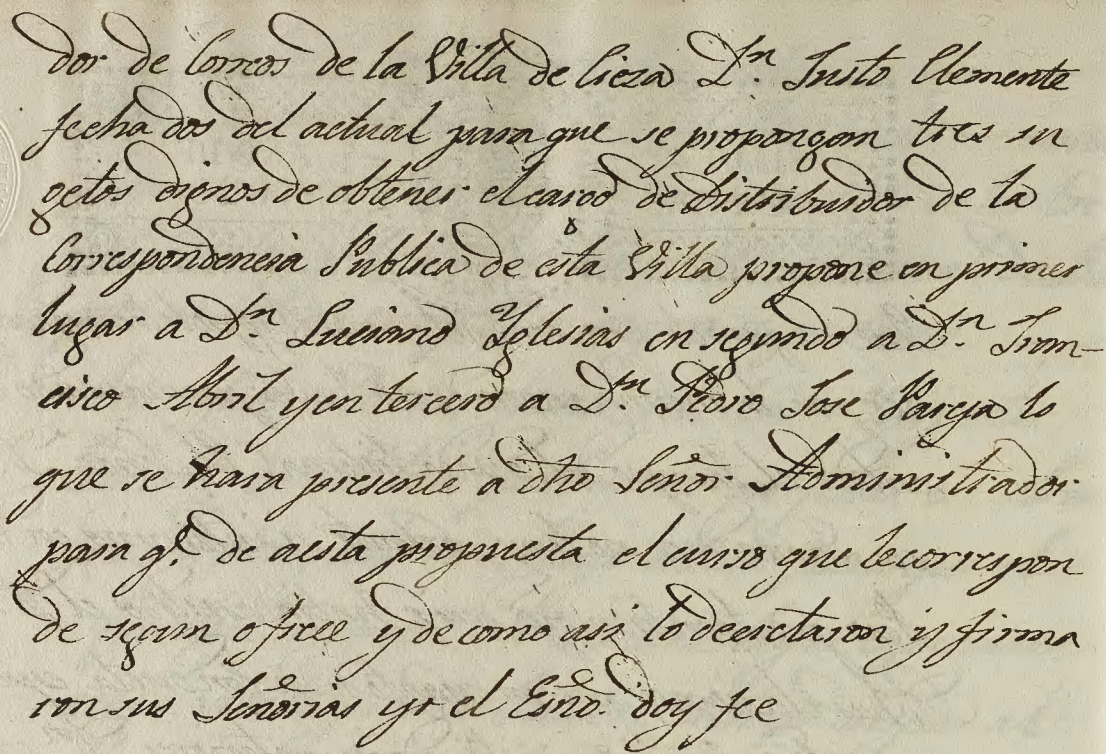 dor de Correos de la Villa de Cieza Dn. Justo Clemente
fecha dos del actual para que se propongan tres su
getos dignos de obtener el cargo de Distribuidor de la
Correspondencia Publica de esta Villa propone en primer
lugar a Dn. Luciano Yglesias en segundo a Dn. Fran-
cisco Abril y en tercero a Dn. Pedro Jose Pareja lo
que se hara presente a dho Señor Administrador
para qe. de a esta propuesta el curso que le correspon
de segun ofrece y de como asi lo decretaron y firma
ron sus Señorias yo el Esñô. doy fee